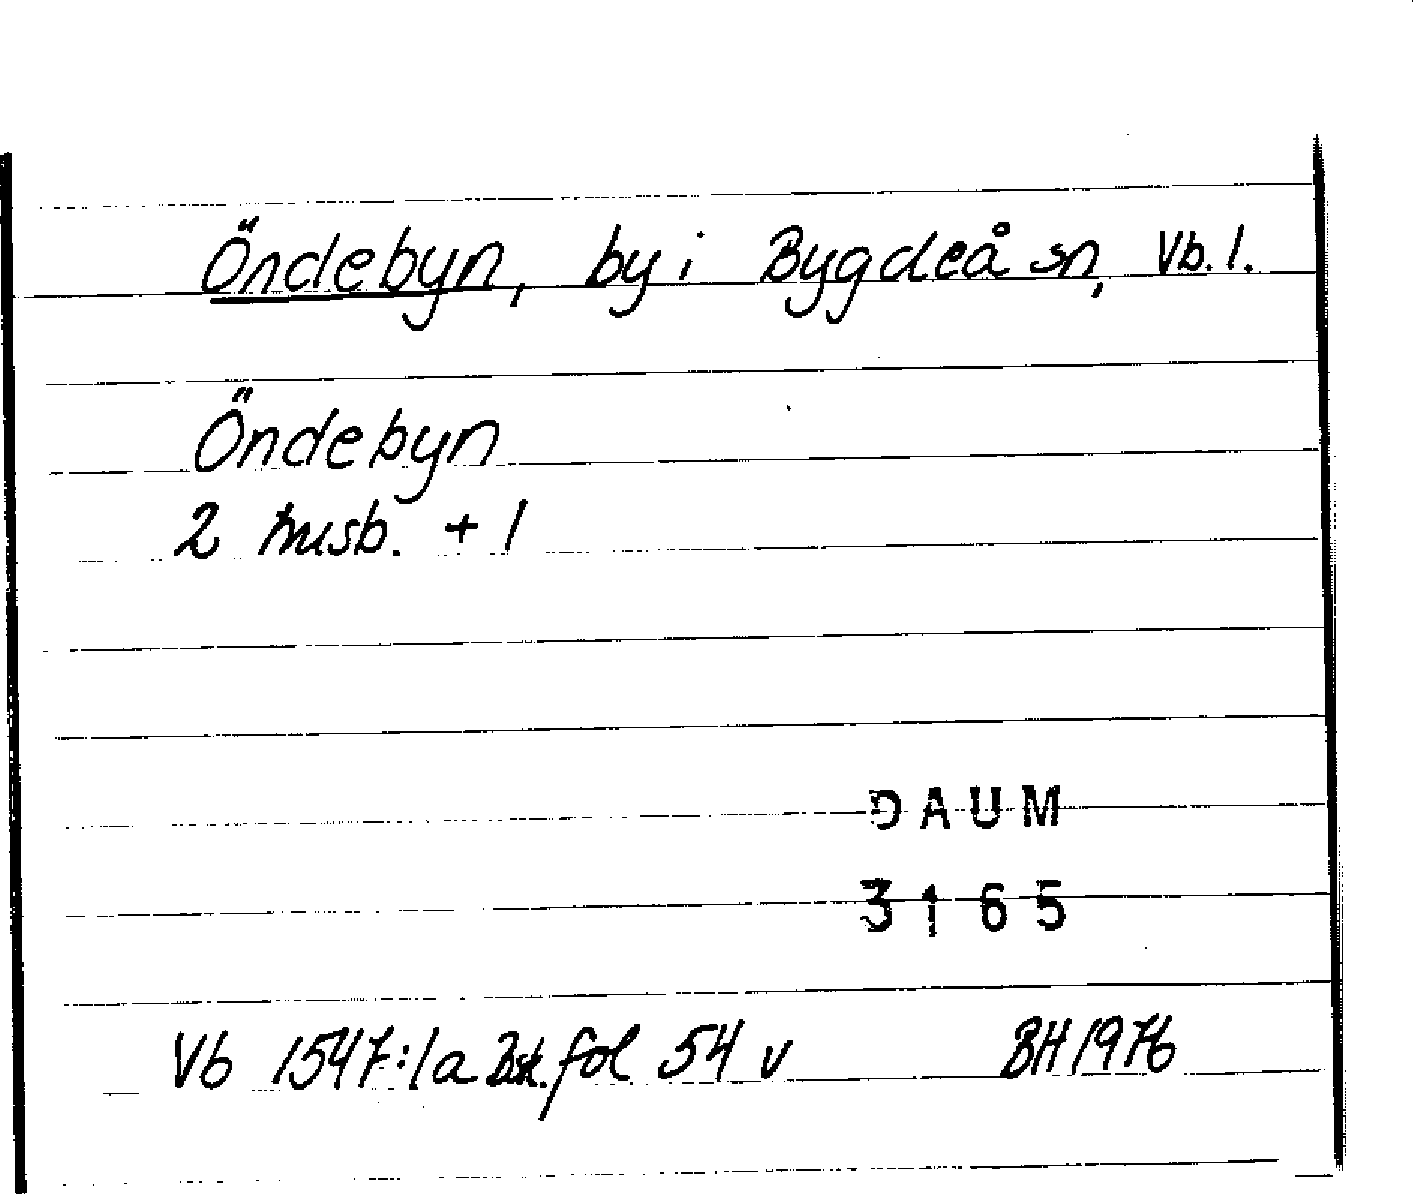 Öndebyn, by i Bygdeå sn, Vb. l.
Öndebyn
2 husb. + 1
DAUM
3165
Vb 1547:1a Bsk. fol 54 v BH 1976